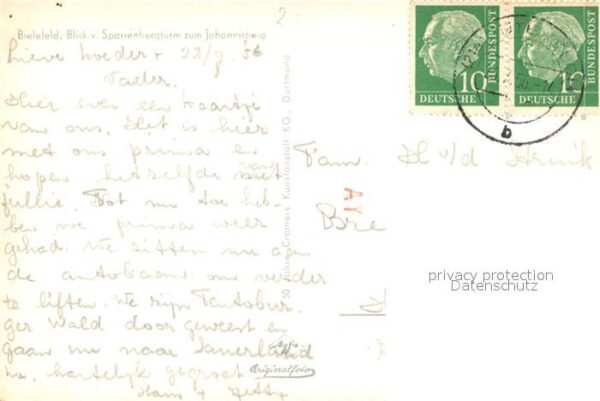 2
Bielefeld. Blick v. Sparrenbergturm zum Johannisberg
Lieve Moeder + 22/9 '56
Vader.
Hier even een kaartje
van ons. Het is hier
met ons prima en
hopen hetzelfde van
jullie. Tot nu toe heb-
ben we prima weer
gehad. We zitten nu aan
de autobaan om verder
te liften. We zijn Teutobur-
ger Wald door geweest en
gaan nu naar Sauerland
hartelijk gegroet
Hans +
50 Jahre Cramers Kunstanstalt KG., Dortmund
Originalfoto
Fam. H v/d
Bre
AY
10
DEUTSCHE
BUNDESPOST
10
DEUTSCHE
BUNDESPOST
b
privacy protection
Datenschutz